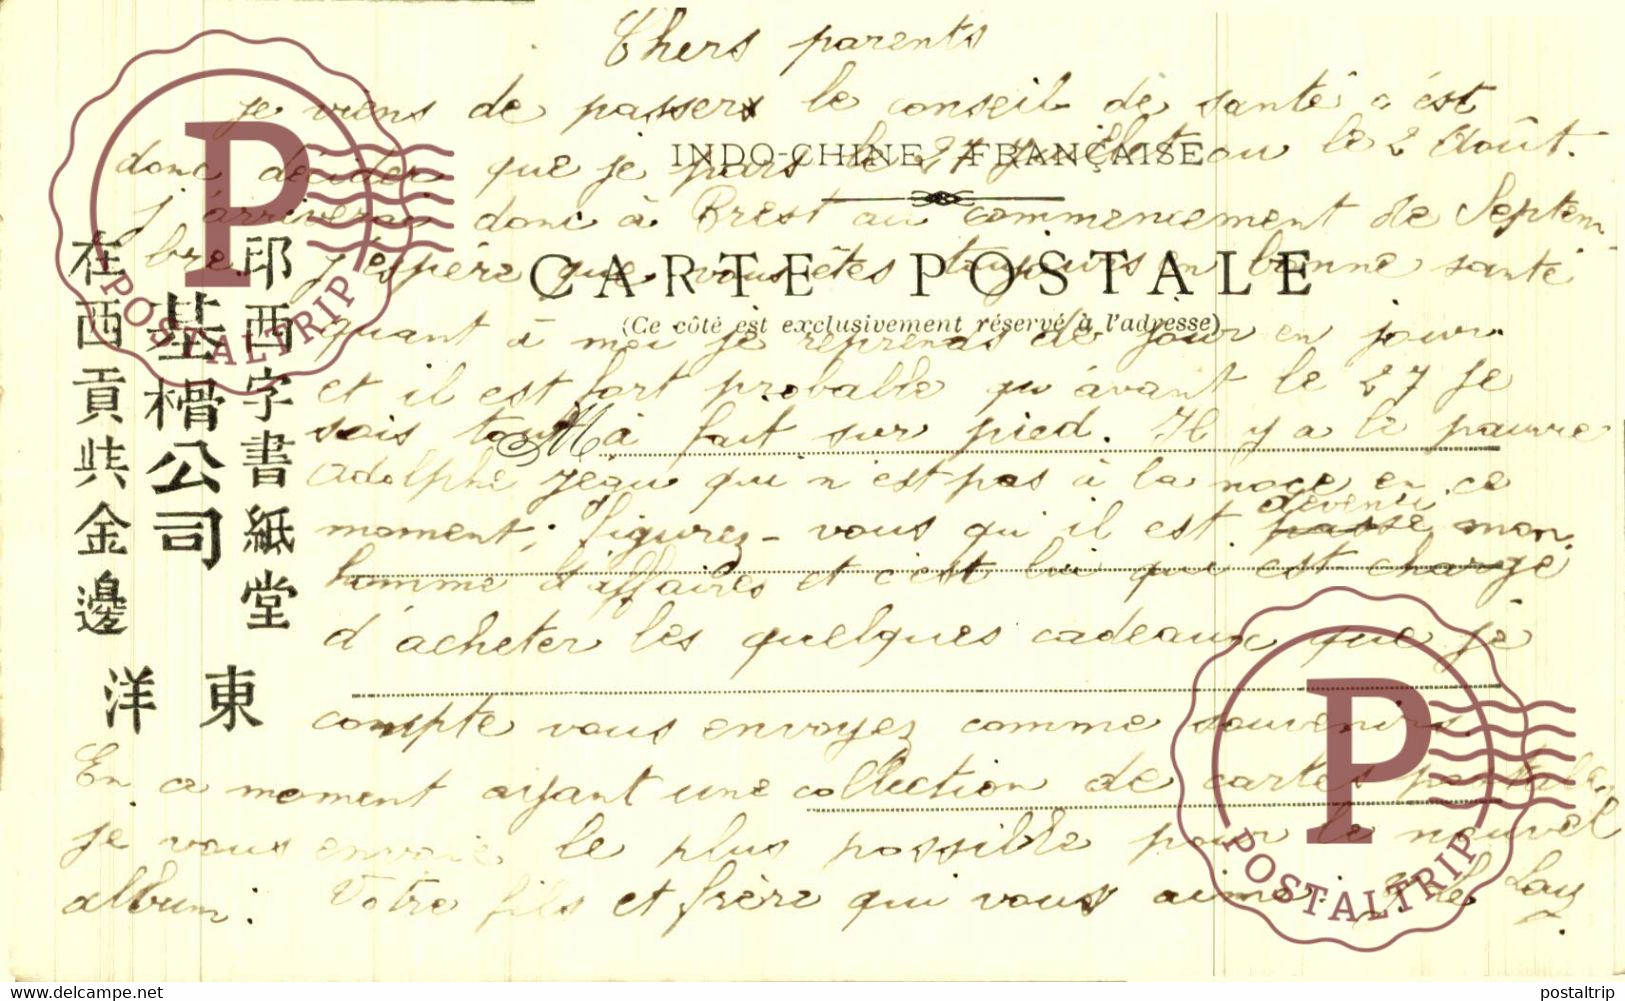 Chers parents
je viens de passer le conseil de santé c'est
donc décider que je pars le 27 juillet ou le 2 Août.
INDO-CHINE FRANÇAISE
J'arriverai donc à Brest au commencement de Septem-
bre. J'espère que vous êtes toujours en bonne santé
CARTE POSTALE
(Ce côté est exclusivement réservé à l'adresse)
quant à moi je reprends de jour en jour
et il est fort probable qu'avant le 27 je
sois tout à fait sur pied. Il y a le pauvre
M
adolphe qui n'est pas à la noce en ce
moment; figurez-vous qu'il est devenu mon
homme d'affaires et c'est lui qui est chargé
d'acheter les quelques cadeaux que je
compte vous envoyez comme souvenirs.
En ce moment ayant une collection de cartes postales,
je vous envoie le plus possible pour le nouvel
album. Votre fils et frère qui vous aime
印西字書紙堂
基榾公司
在西貢金邊
東洋
POSTALTRIP
POSTALTRIP
www.delcampe.net
postaltrip